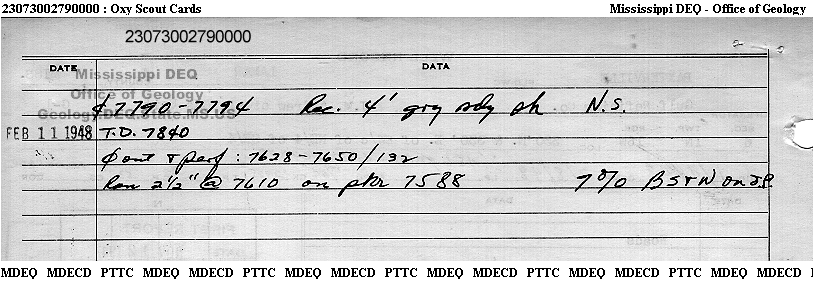 23073002790000 : Oxy Scout Cards Mississippi DEQ - Office of Geology
23073002790000
DATE DATA
Mississippi DEQ
Office of Geology
Geology.DEQ.State.MS.US
¢ 7790-7794 Rec. 4' gry sdy sh N.S.
FEB 11 1948 T.D. 7840
¢ out & perf: 7628-7650/132
Ran 2½" @ 7610 on pkr 7588 7% BS & W on
MDEQ MDECD PTTC MDEQ MDECD PTTC MDEQ MDECD PTTC MDEQ MDECD PTTC MDEQ MDECD PTTC MDEQ MDECD